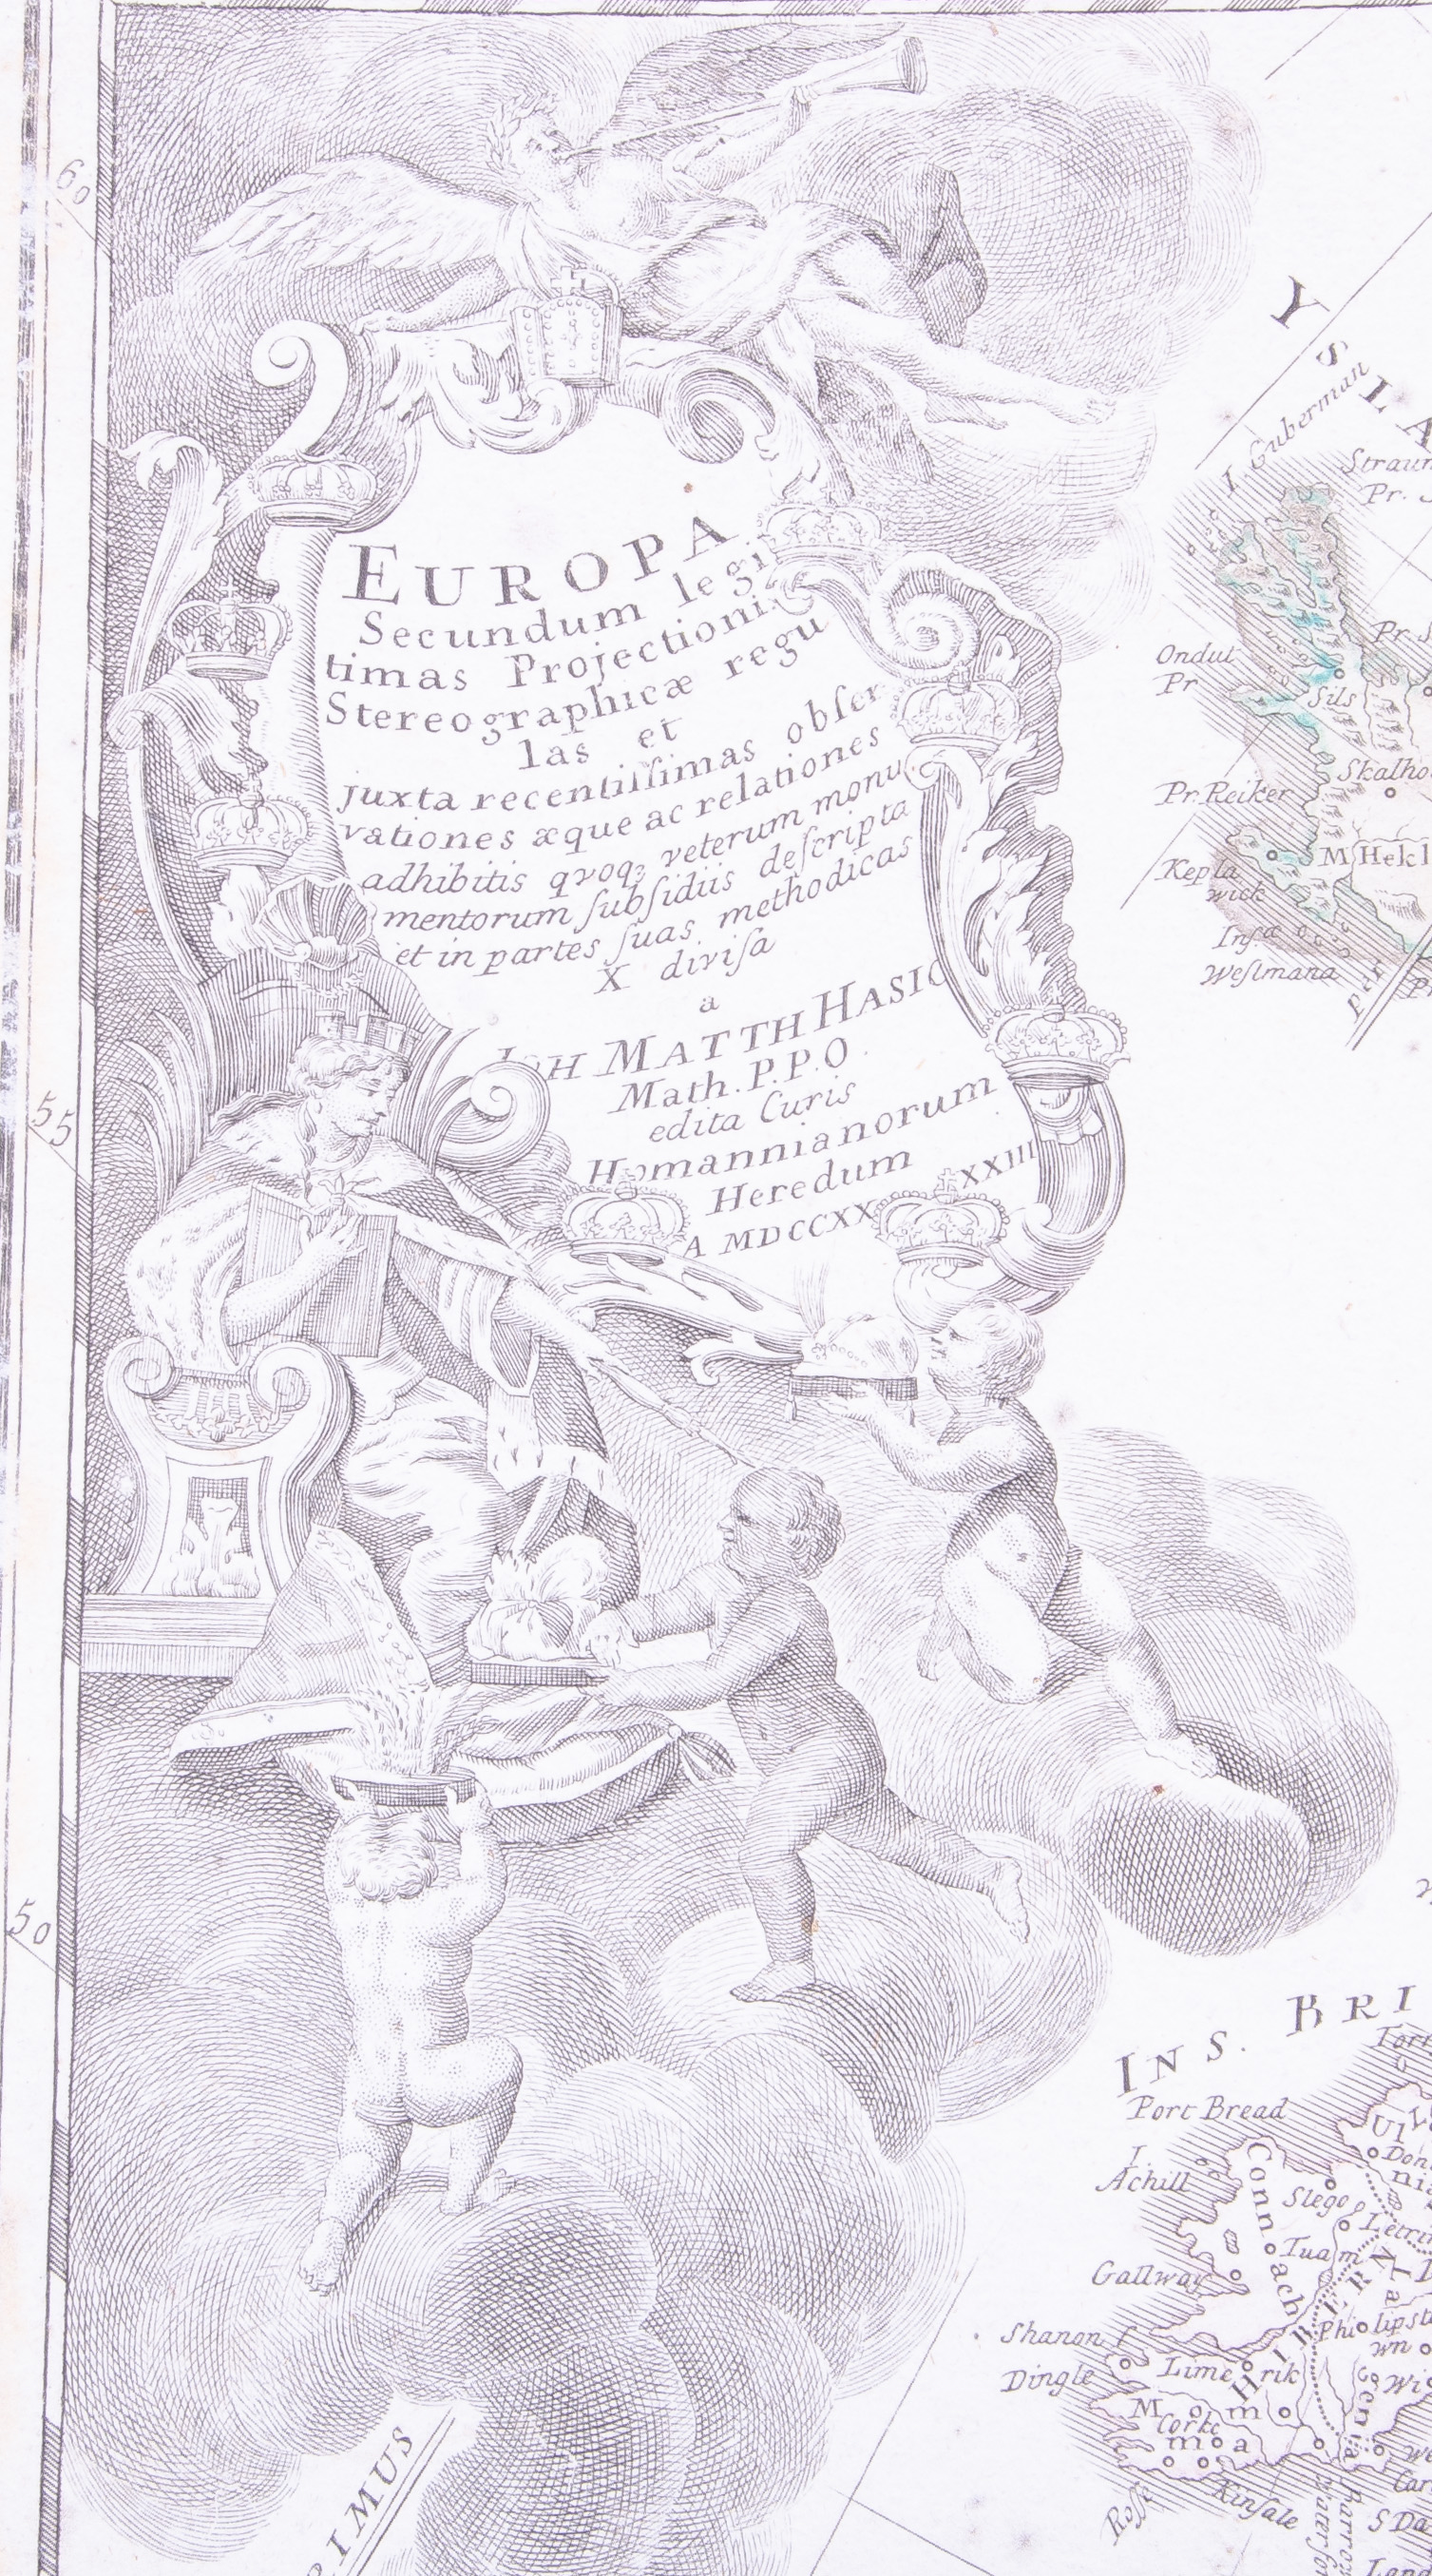 60
55
50
EUROPA
Secundum legi
timas Projectionis
Stereographicæ regu
las et
juxta recentiſſimas obſer
vationes æque ac relationes
adhibitis qvoqȝ veterum monu
mentorum ſubſidiis deſcripta
et in partes ſuas methodicas
X diviſa
a
IOH MATTH HASIO
Math. P. P. O.
edita Curis
Homannianorum
Heredum
A MDCCXX XXIII
Y S L A
I Guberman
Straum
Pr.
Ondut
Pr
Pr. S
Sils
Skalho
Pr. Reiker
M Hekl
Kepla
wisk
Inſæ
Weſlmana
INS. BRI
Torr
Port Bread
Ul
I.
Achill
Done
Connoach
Slego
Letrim
Tuam
Gallway
La
genia
Shanon f
Philipsto
wn
Dingle
Limerik
HIBER
Wi
Mom
Corke
monia
Kinſale
Roſſe
We
Car
S Da
Land
RIMUS